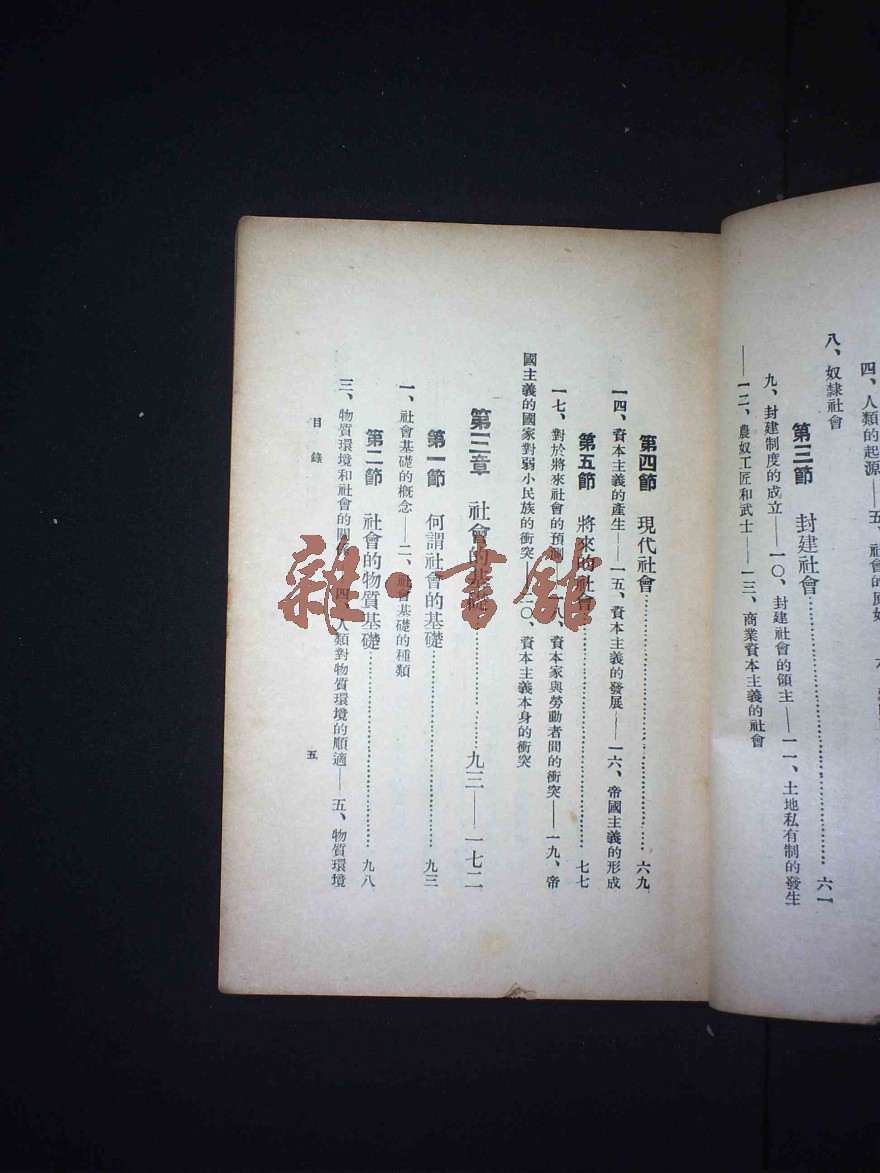 四、人類的起源——五、社會的原始
八、奴隸社會
第三節　封建社會……六一
九、封建制度的成立——一〇、封建社會的領主——一一、土地私有制的發生
——一二、農奴工匠和武士——一三、商業資本主義的社會
第四節　現代社會……六九
一四、資本主義的產生——一五、資本主義的發展——一六、帝國主義的形成
第五節　將來的社會……七七
一七、對於將來社會的預測——一八、資本家與勞動者間的衝突——一九、帝
國主義的國家對弱小民族的衝突——二〇、資本主義本身的衝突
第三章　社會的基礎……九三——一七二
第一節　何謂社會的基礎……九三
一、社會基礎的概念——二、社會基礎的種類
第二節　社會的物質基礎……九八
三、物質環境和社會的關係——四、人類對物質環境的順適——五、物質環境
目錄
五
雜·書館